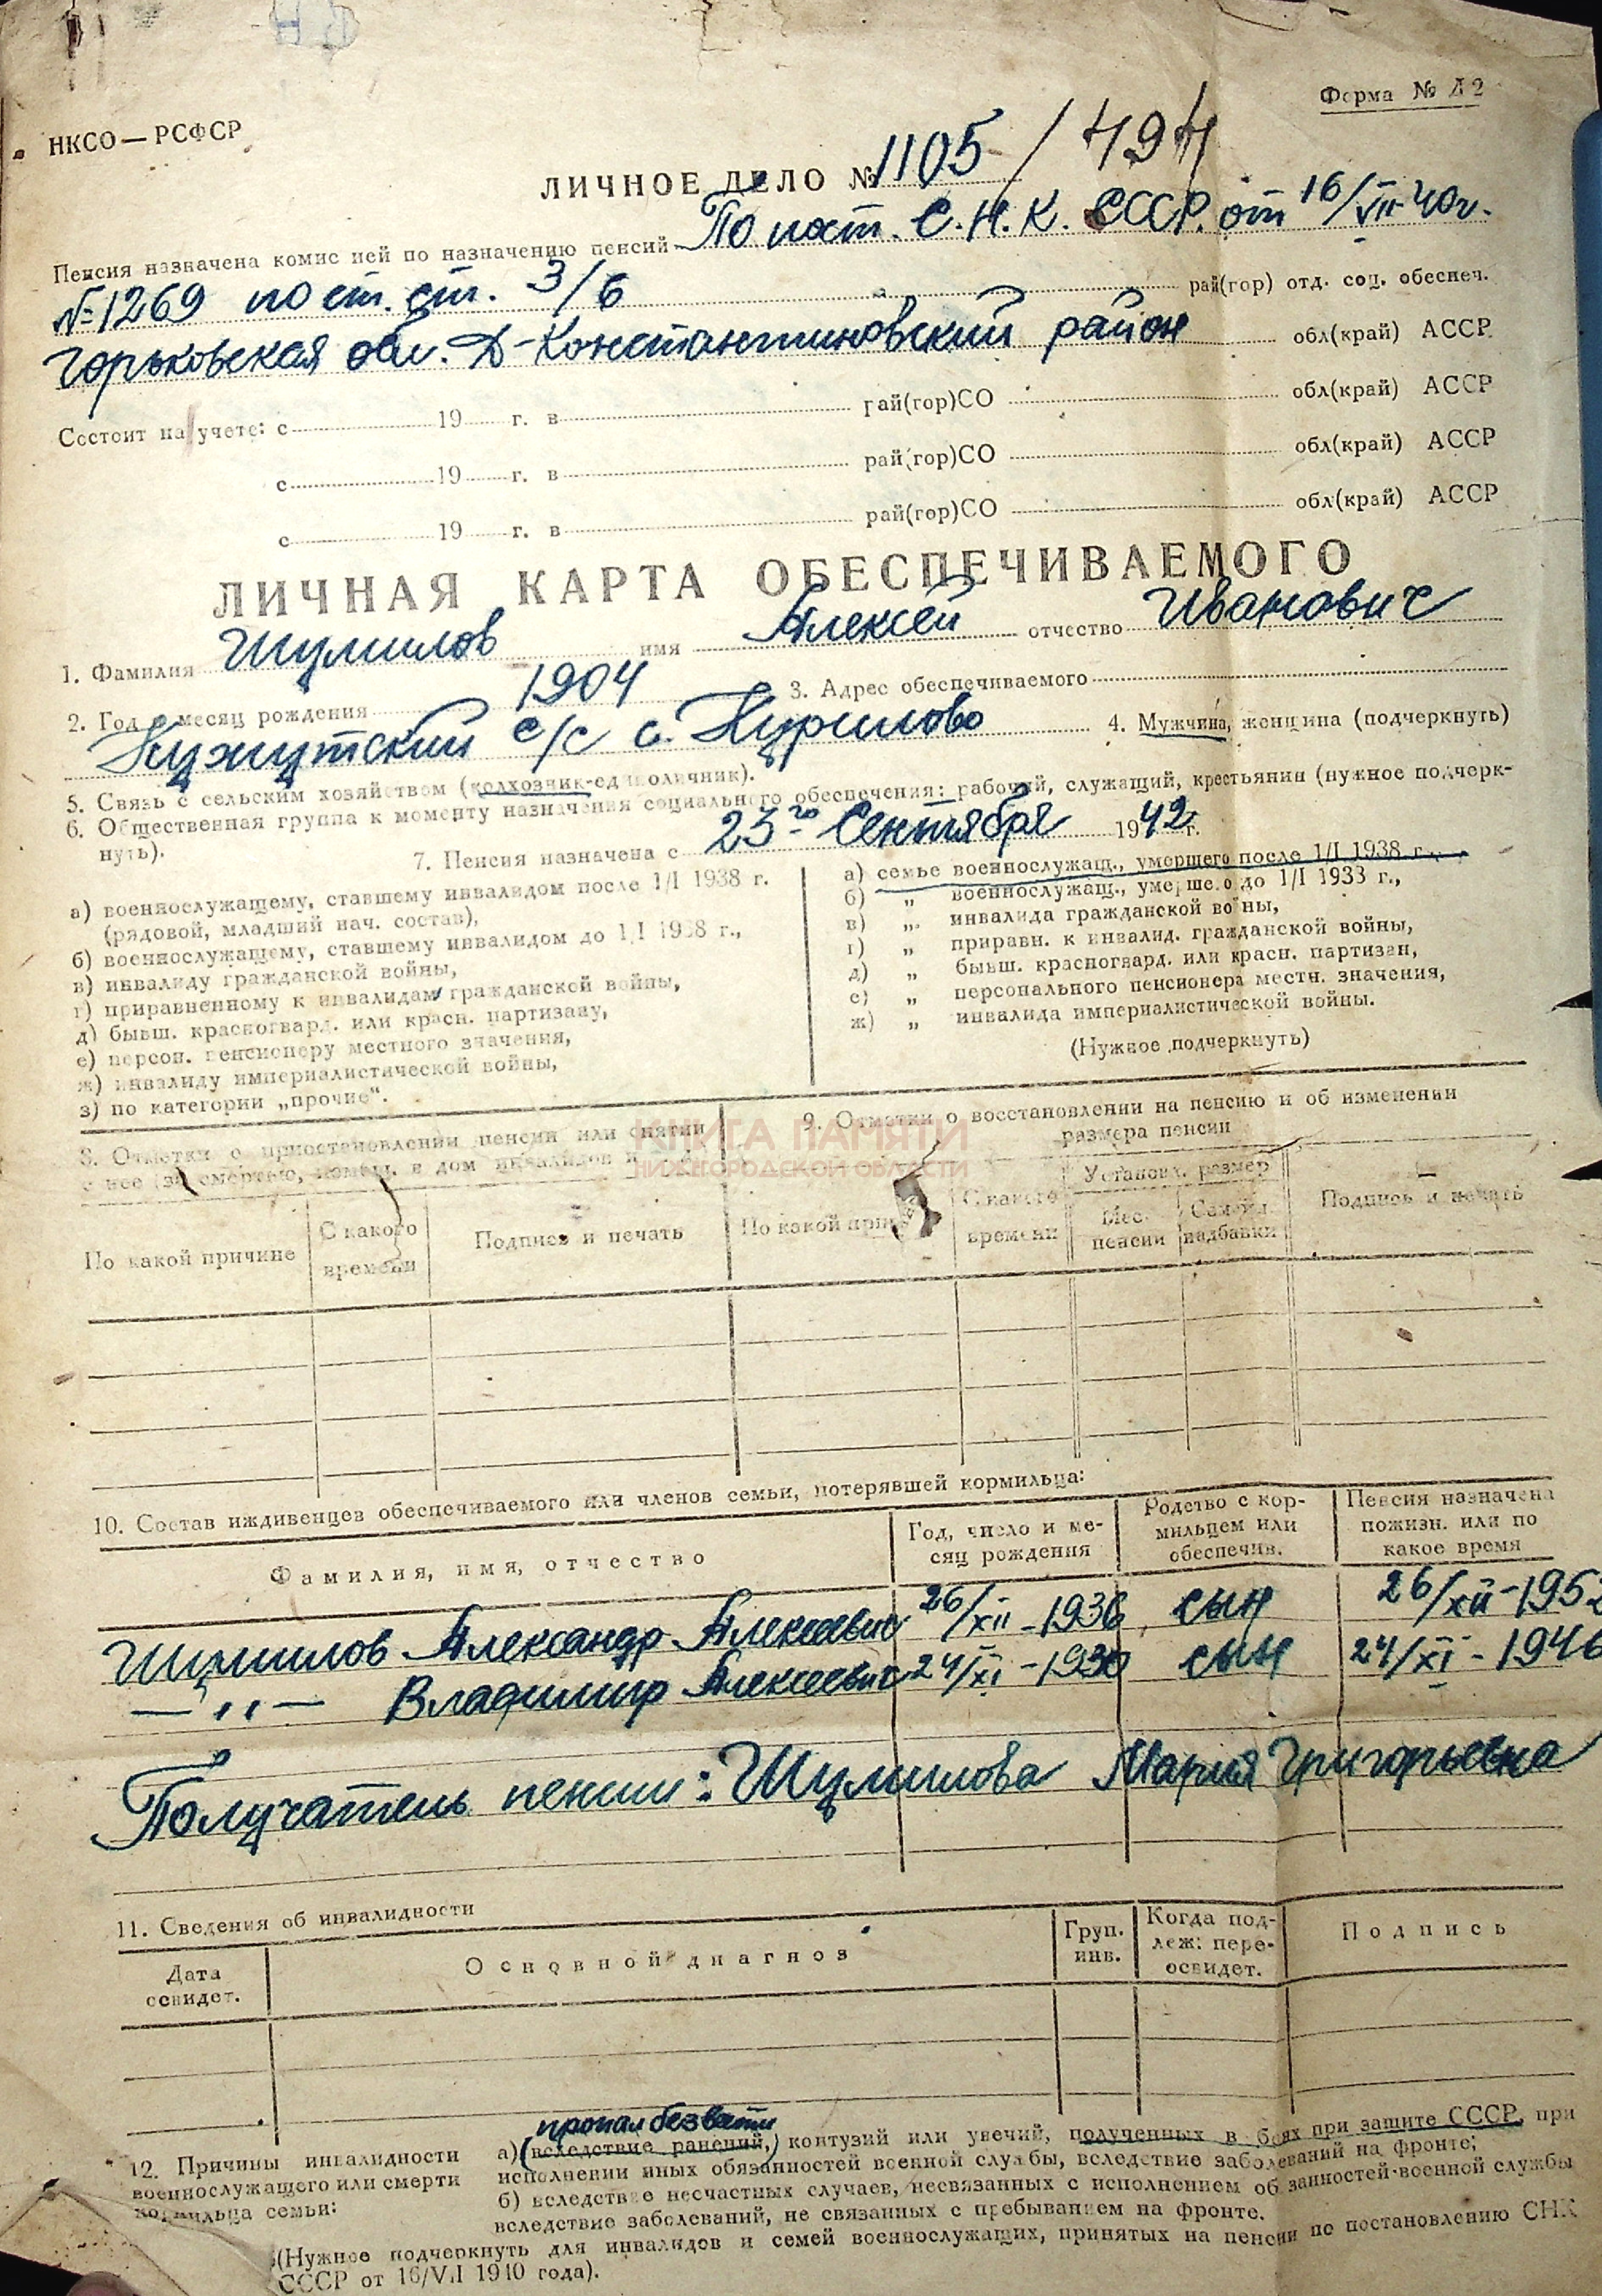 Форма № Д 2
НКСО — РСФСР
ЛИЧНОЕ ДЕЛО № 1105 / 494
Пенсия назначена комис ией по назначению пенсий По пост. С.Н.К. СССР. от 16/VII-40г.
№ 1269 по ст. ст. 3/6 рай(гор) отд. соц. обеспеч.
Горьковская обл. Д-Константиновский район обл(край) АССР
Состоит на учете: с 19 г. в рай(гор)СО обл(край) АССР
с 19 г. в рай(гор)СО обл(край) АССР
с 19 г. в рай(гор)СО обл(край) АССР
ЛИЧНАЯ КАРТА ОБЕСПЕЧИВАЕМОГО
1. Фамилия Шумилов имя Алексей отчество Иванович
2. Год и месяц рождения 1904 3. Адрес обеспечиваемого
Кужутский с/с с. Курилово 4. Мужчина, женщина (подчеркнуть)
5. Связь с сельским хозяйством (колхозник-единоличник).
6. Общественная группа к моменту назначения социального обеспечения: рабочий, служащий, крестьянин (нужное подчерк-
нуть).
7. Пенсия назначена с 23го Сентября 1942 г.
а) военнослужащему, ставшему инвалидом после 1/I 1938 г.
(рядовой, младший нач. состав),
б) военнослужащему, ставшему инвалидом до 1/I 1938 г.,
в) инвалиду гражданской войны,
г) приравненному к инвалидам гражданской войны,
д) бывш. красногвард. или красн. партизану,
е) персон. пенсионеру местного значения,
ж) инвалиду империалистической войны,
з) по категории „прочие“.
а) семье военнослужащ., умершего после 1/I 1938 г.,
б) „ военнослужащ., умершего до 1/I 1938 г.,
в) „ инвалида гражданской войны,
г) „ приравн. к инвалид. гражданской войны,
д) „ бывш. красногвард. или красн. партизан,
е) „ персонального пенсионера местн. значения,
ж) „ инвалида империалистической войны.
(Нужное подчеркнуть)
8. Отметки о приостановлении пенсии или снятии
с нее (за смертью, помещ. в дом инвалидов и
9. Отметки о восстановлении на пенсию и об изменении
размера пенсии
КНИГА ПАМЯТИ
НИЖЕГОРОДСКОЙ ОБЛАСТИ
По какой причине
С какого
времени
Подпись и печать
По какой при
С какого
времени
Установл. размер
Мес.
пенсии
Семейн.
надбавки
Подпись и печать
10. Состав иждивенцев обеспечиваемого или членов семьи, потерявшей кормильца:
Фамилия, имя, отчество
Год, число и ме-
сяц рождения
Родство с кор-
мильцем или
обеспечив.
Пенсия назначена
пожизн. или по
какое время
Шумилов Александр Алексеевич 26/XII-1936 сын 26/XII-1952
— „ — Владимир Алексеевич 24/XI-1930 сын 24/XI-1946
Получатель пенсии: Шумилова Мария Григорьевна
11. Сведения об инвалидности
Дата
освидет.
Основной диагноз
Груп.
инв.
Когда под-
леж: пере-
освидет.
Подпись
12. Причины инвалидности
военнослужащего или смерти
кормильца семьи:
пропал без вести
а) (вследствие ранений,) контузий или увечий, полученных в боях при защите СССР, при
исполнении иных обязанностей военной службы, вследствие заболеваний на фронте;
б) вследствие несчастных случаев, несвязанных с исполнением обязанностей военной службы
вследствие заболеваний, не связанных с пребыванием на фронте.
(Нужное подчеркнуть для инвалидов и семей военнослужащих, принятых на пенсии по постановлению СНК
СССР от 16/VII 1940 года).